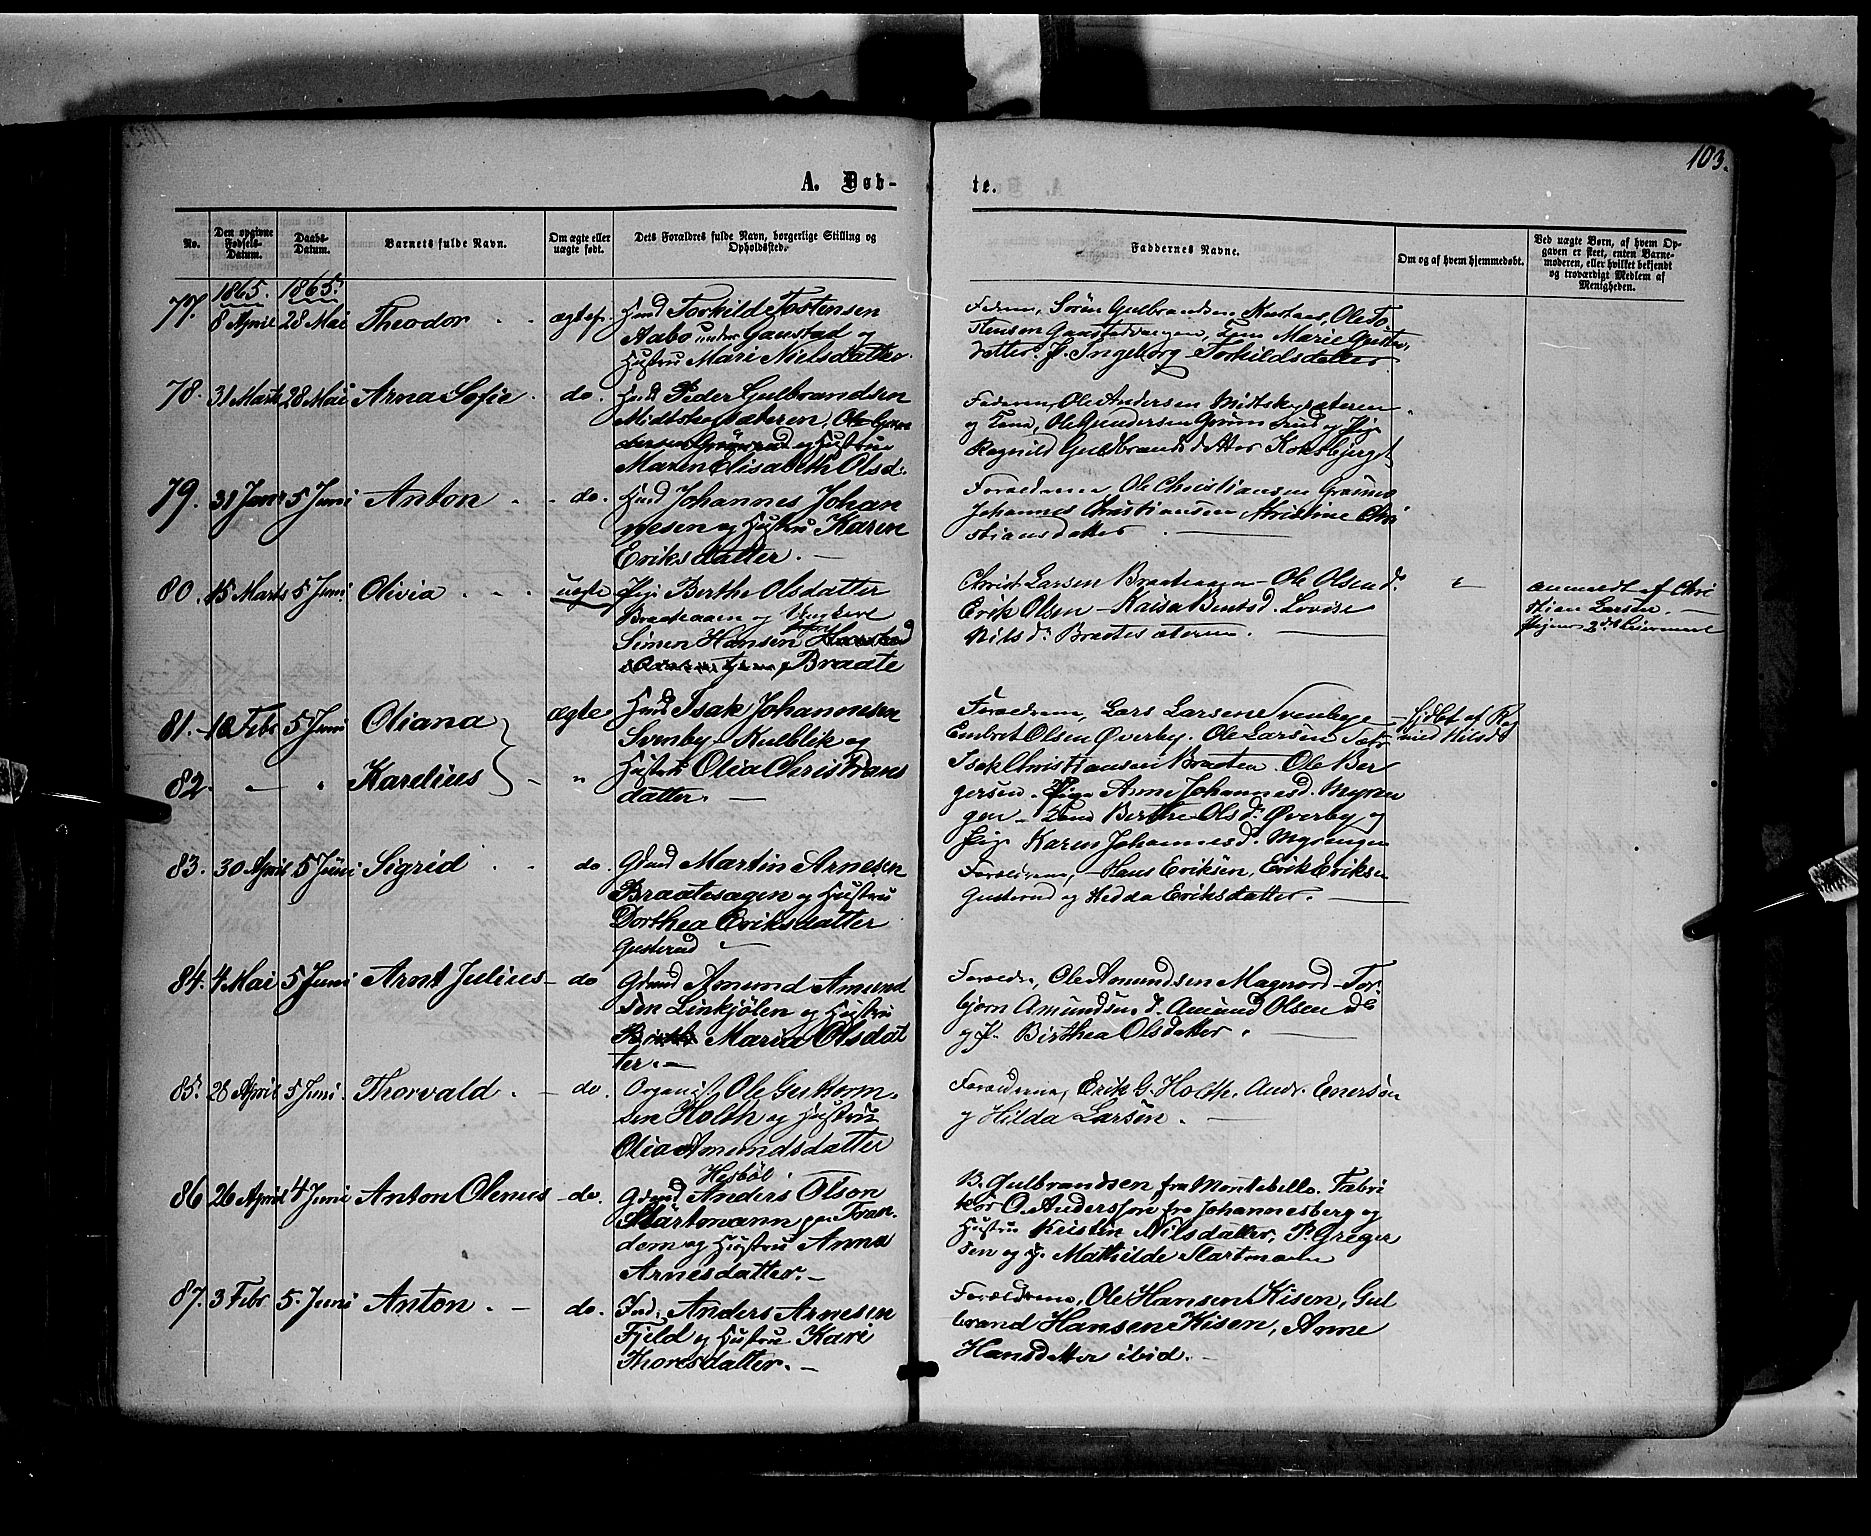 103.
A. Døb-
te.
No.
Den opgivne Fødsels-Datum.
Daabs-Datum.
Barnets fulde Navn.
Om ægte eller uægte født.
Dets Forældres fulde Navn, borgerlige Stilling og Opholdssted.
Faddernes Navne.
Om og af hvem hjemmedøbt.
Ved uægte Børn, af hvem Opgaven er skeet, enten Barnemoderen, eller hvilket bekjendt og troværdigt Medlem af Menigheden.
1865. 1865.
77. 8 April 28 Mai Theodor
Torkilde Tostensen
Aabo under Gaustad og
Hustru Mari Nielsdatter.
Faderen, Søren Gulbrandsen Ole To
stensen
datter. P. Ingeborg Torkildsdatter
78. 31 Marts 28 Mai Arna Sofie do.
Peder Gulbrandsen
og Hustru
Maren Elisabeth Olsd.
Faderen, Ole Andersen Midtskogsæteren
og Kone, Ole Gundersen og Pige
Ragnild Guldbrandsdatter Kongsbjerget
79. 31 Janr 5 Juni Anton do.
Johannes Johan
nesen og Hustru Karen
Eriksdatter.
Forældrene, Ole Christiansen
Johannes Christiansen, Kristine Chri
stiansdatter
80. 15 Marts 5 Juni Olivia uægte
Pige Berthe Olsdatter
Braateaaen og Ungkarl
Simen Hansen
Braate
Christ. Larsen Braateaaen Ole Olsen do
Erik Olsen Kaisa Bentsd. Lovise
Nilsd. Braatesæteren.
anmeldt af Chri
stian Larsen.
Pigens 2det Leiermaal
81. 18 Febr 5 Juni Oliana ægte
Isak Johannesen
Svenby Kulblik og
82. Karelius
Hustru Olia Christians
datter.
Forældrene, Lars Larsen Svenbye
Embret Olsen Øverby. Ole Larsen
Isak Christiansen Braaten. Ole Ber
gersen. Pige Anne Johannesd. Myren
gen Kone Berthe Olsd. Øverby og
Pige Karen Johannesd. Myrengen
hjdbt af Rag
nild Nilsd
83. 30 April 5 Juni Sigrid do.
Gmd Martin Arnesen
Braatesagen og Hustru
Dorthea Eriksdatter
Gusterud
Forældrene, Hans Eriksen, Erik Eriksen
Gusterud og Hedda Eriksdatter.
84. 4 Mai 5 Juni Arnt Julius do
Amund Amund
sen Linkjølen og Hustru
Maria Olsdat
ter.
Forældre, Ole Amundsen Magnord Tor
bjørn Amundsen d. Amund Olsen
og P. Birthea Olsdatter.
85. 28 April 5 Juni Thorvald do.
Organist Ole Guttorm
sen Holth og Hustru
Olia Amundsdatter
Forældrene, Erik G. Holth. Andr. Enersen
og Hilda Larsen.
86 26 April 4 Juni Anton Olenus do.
Hesbøl
Anders Olson
Startmann paa Tran
dem og Hustru Anna
Arnesdatter.
B. Gulbrandsen fra Montebello. Fabri
kør O. Andersson fra Johannesberg og
Hustru Kristin Nilsdatter, P. Greger
sen og P. Mathilde Startmann
87. 3 Febr 5. Juni Anton. do.
Ind. Anders Arnesen
Fjeld og Hustru Kari
Thoresdatter.
Forældrene, Ole Hansen Kisen, Gul
brand Hansen Kisen, Anne
Hansdatter ibid.